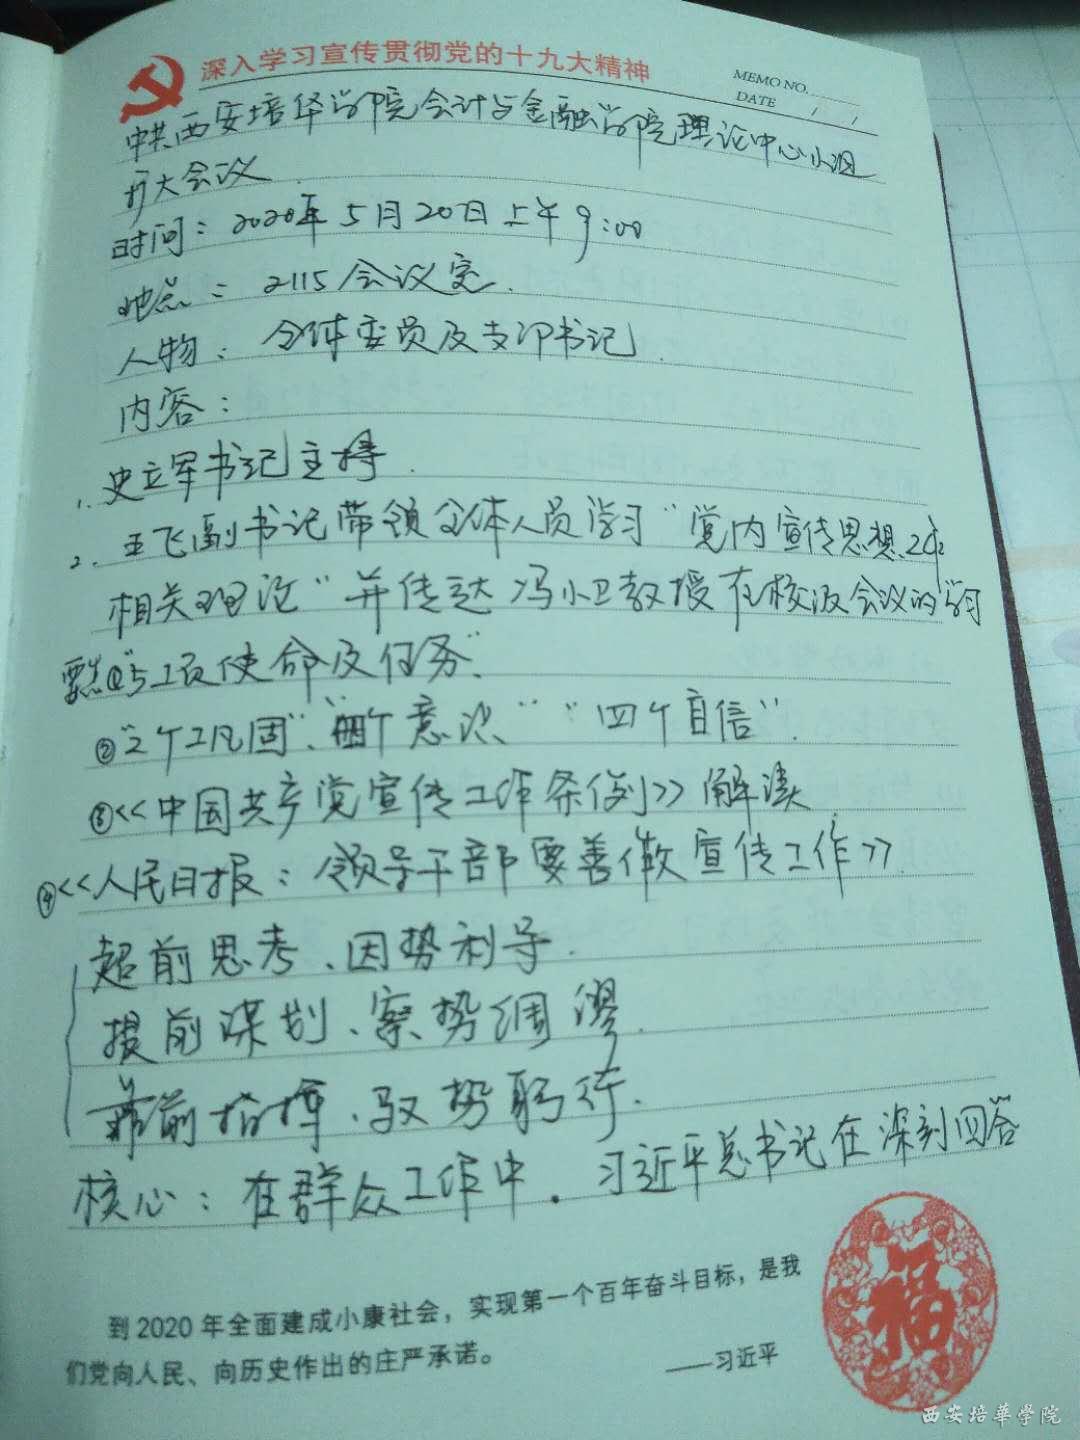 深入学习宣传贯彻党的十九大精神
MEMO NO.
DATE / /
中共西安培华学院会计与金融学院理论中心小组
扩大会议
时间：2020年5月20日上午9:00
地点：2115会议室.
人物：全体委员及支部书记.
内容：
1. 史立军书记主持.
2. 王飞副书记带领全体人员学习“党内宣传思想工作
相关理论”并传达冯小卫教授在校级会议的学习
要点①“5项使命及任务”.
②“2个巩固”、“四个意识”“四个自信”.
③<<中国共产党宣传工作条例>>解读
④<<人民日报：领导干部要善做宣传工作>>.
超前思考、因势利导.
提前谋划、案势绸缪.
靠前指挥、驭势躬行.
核心：在群众工作中. 习近平总书记在深刻回答
到2020年全面建成小康社会，实现第一个百年奋斗目标，是我
们党向人民、向历史作出的庄严承诺。
——习近平
福
西安培華学院